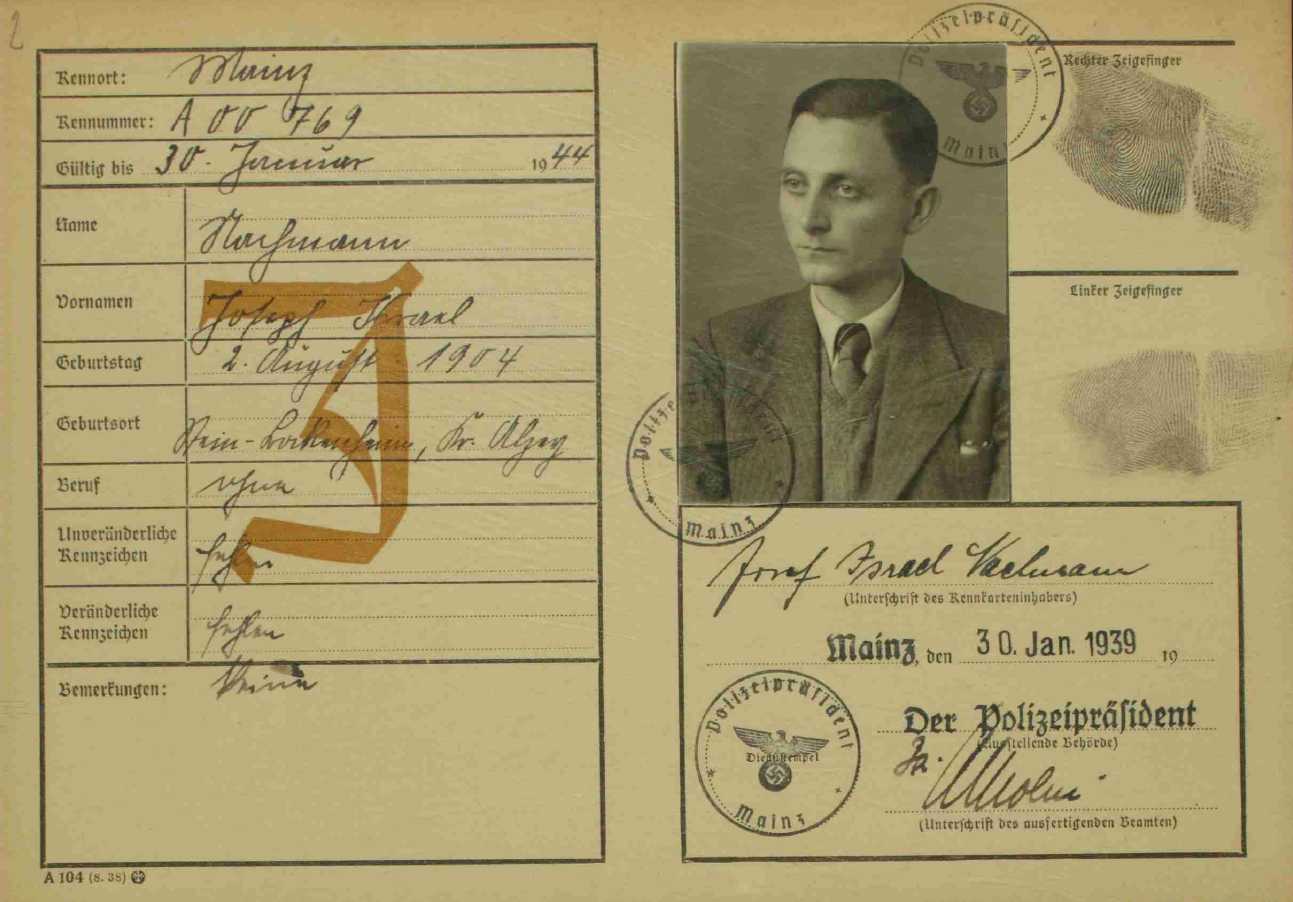 2
Kennort: Mainz
Kennummer: A 00 769
Gültig bis 30. Januar 1944
Name
Nachmann
Vornamen
Joseph Israel
Geburtstag 2. August 1904
Geburtsort
Wein-Bockenheim, Kr. Alzey
Beruf ohne
Unveränderliche
Kennzeichen fehlen
Veränderliche
Kennzeichen fehlen
Bemerkungen: Keine
J
A 104 (8. 38)
Polizeipräsident
Mainz
Rechter Zeigefinger
Linker Zeigefinger
Polizeipräsident
Mainz
Josef Israel Nachmann
(Unterschrift des Kennkarteninhabers)
Mainz, den 30. Jan. 1939 19
Polizeipräsident
Dienststempel
Mainz
Der Polizeipräsident
(Ausstellende Behörde)
(Unterschrift des ausfertigenden Beamten)